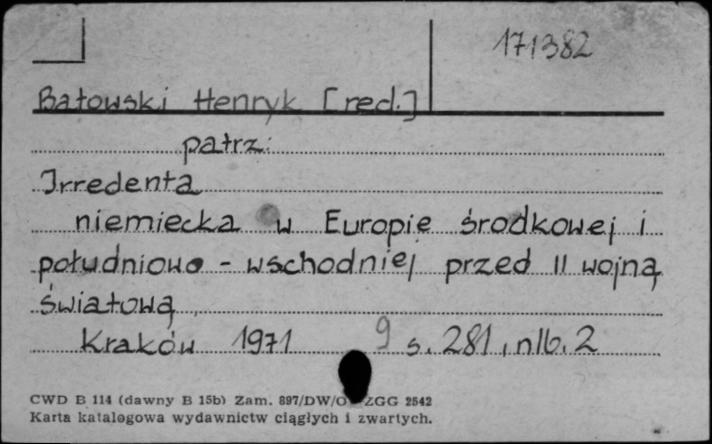 171382
Batowski Henryk [red.]
patrz:
Irredenta
niemiecka w Europie środkowej i
południowo - wschodniej przed II wojną
światową,
Kraków 1971 9 s. 281, nlb. 2
CWD B 114 (dawny B 15b) Zam. 897/DW/O ZGG 2542
Karta katalogowa wydawnictw ciągłych i zwartych.